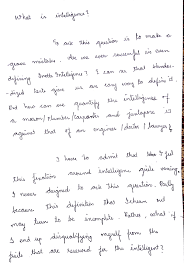 What is intelligence?
To ask this question is to make a
grave mistake. Are we ever successful in even
defining Intelligence? I can say that standar-
-dized tests give us an easy way to define it.
But how can we quantify the intelligence of
a mason/plumber/carpenter and juxtapose it
against that of an engineer/doctor/lawyer?
I have to admit that I feel
this fixation around intelligence, quite
I never designed to ask this question. Partly
because this definition that I
may turn to be incomplete. Rather, what if
I end up disqualifying myself from the
that are reserved for the intelligent?